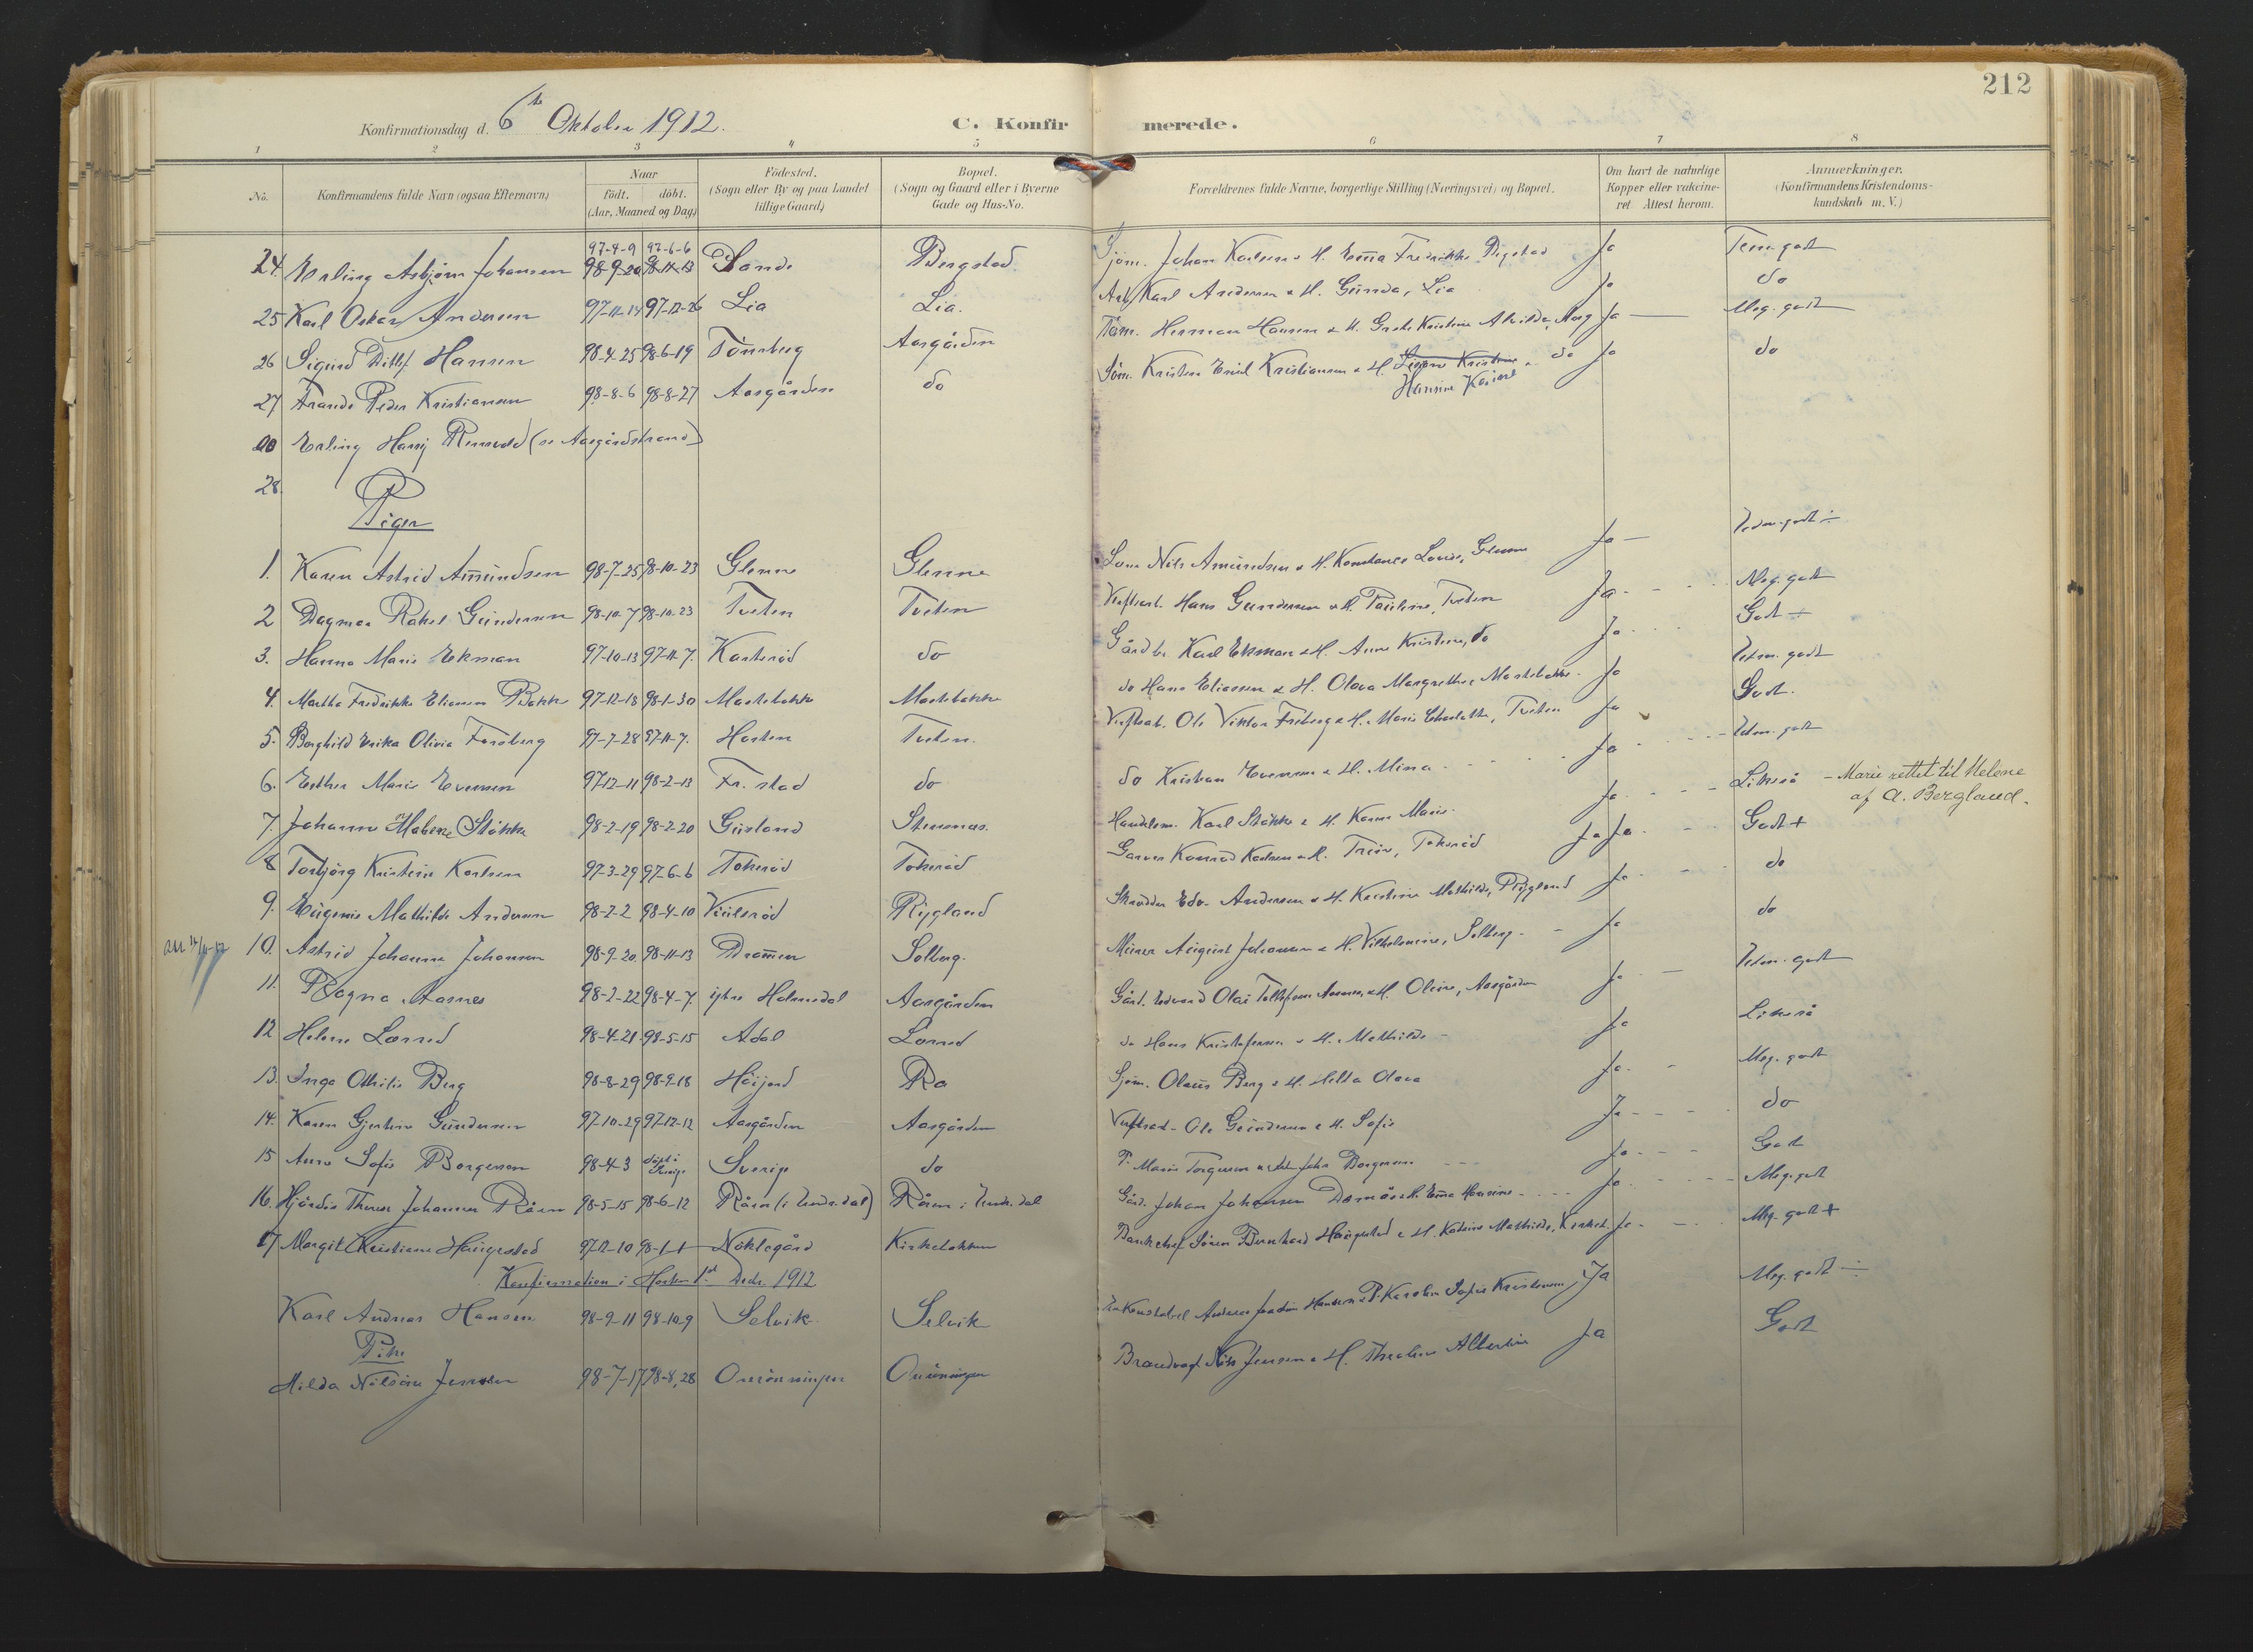 212
Konfirmationsdag d. 6te Oktober 1912.
C. Konfirmerede.
1 2 3 4 5 6 7 8
No. Konfirmandens fulde Navn (ogsaa Efternavn)
Naar
født. döbt.
(Aar, Maaned og Dag.)
Födested.
(Sogn eller By og paa Landet
tillige Gaard)
Bopæl.
(Sogn og Gaard eller i Byerne
Gade og Hus-No.
Forældrenes fulde Navne, borgerlige Stilling (Næringsvei) og Bopæl.
Om havt de naturlige
Kopper eller vakcine-
ret. Attest herom.
Anmærkninger.
(Konfirmandens Kristendoms-
kundskab m. V.)
97-4-9 97-6-6
24. Erling Asbjörn Johansen 98-9-20 98-11-13 Sande Bergstad Sjöm. Johan Karlsen & H. Emma Fredrikke Ja Tem. godt
25 Karl Oskar Andersen 97-11-14 97-12-26 Lia Lia. Arb. Karl Andersen & H. Gunda, Lia Ja do
26 Sigurd Ditlef Hansen 98-4-25 98-6-19 Tönsberg Aasgården Töm. Herman Hansen & H. Grete Kristine Alvilde, Aasg Ja Meg. godt
27 Frands Peder Kristiansen 98-8-6 98-8-27 Aasgården do Söm. Kristen Emil Kristiansen & H. Hansine do Ja do
Erling Harry (se Aasgårdstrand)
28.
Piger
1. Karen Astrid Amundsen 98-7-25 98-10-23 Glenne Glenne Nils Amundsen & H. Konstance Lovise, Glenne Ja Udm. godt ÷
2 Dagmar Rakel Gundersen 98-10-7 98-10-23 Tveten Tveten Verftsarb. Hans Gundersen & H. Pauline, Tveten Ja Meg. godt
3. Hanna Marie Ekman 97-10-13 97-11-7. Karlsröd do Gårdbr. Karl Ekman & H. Anne Kristine, do Ja Godt +
4. Martha Fredrikke Eliassen Bakke 97-12-18 98-1-30 Mastebakke Mastebakke do Hans Eliassen & H. Olava Margrethe, Mastebakke Ja Udm. godt
5. Borghild Erika Olivia Forsberg 97-7-28 97-11-7. Horten Tveten. Verftsarb. Ole Viktor Forsberg & H. Marie Charlotte, Tveten Ja Godt.
6. Esther Marie Evensen 97-12-11 98-2-13 Fr. stad do do Kristian Evensen & H. Mina Ja Udm. godt
7. Johanne Helene Stokke 98-2-19 98-2-20 Gusland Handelsm. Karl Stokke & H. Karen Marie Ja Likeså – Marie rettet til Helene
af A. Bergland.
8 Torbjörg Kristine Karlsen 97-3-29 97-6-6 Tokeröd Tokeröd Garver Konrad Karlsen & H. Tokeröd Ja Ja Godt +
9. Eugenie Mathilde Andersen 98-2-2 98-4-10 Rygland Skrædder Edv. Andersen & H. Kristine Mathilde, Rygland Ja do
10. Astrid Johanne Johansen 98-9-20 98-11-13 Drammen Solberg. Murer August Johansen & H. Vilhelmine, Solberg Ja do
11. Ragna Aasnes 98-2-22 98-4-7. ytre Holmedal Aasgården Gårdbr. Edvard Olai Tollefsen Aasnes & H. Oline, Aasgården Ja Udm. godt
12 Helene Lorred 98-4-21 98-5-15 Adal Lorred do Hans Kristofersen & H. Mathilde Ja Likeså
13. Inga Othilie Berg 98-8-29 98-9-18 Höijord Ra Sjöm. Olaus Berg & H. Hilda Olava Ja Meg. godt
14. Karen Gjertine Gundersen 97-10-29 97-12-12 Aasgården Aasgården Verftsarb. Ole Gundersen & H. Sofie Ja do
15 Anne Sofie Borgersen 98-4-3 döbt i Sverige Sverige do P. Marie Torgersen & John Borgersen Ja Godt
16. Hjördis Therese Johansen Råen 98-5-15 98-6-12 Råen (i Undr.dal) Råen i Undr. dal Gårdbr. Johan Johansen & H. Emma Hansine Ja Meg. godt
17 Margit Kristiane Haugestad 97-12-10 98-1-1 Nöklegård Kirkebakken Bankchef Sören Bernhard Haugestad & H. Katrine Mathilde, Ja Meg. godt +
Konfirmation i Horten 1ste Decbr. 1912
Karl Andreas Hansen 98-9-11 98-10-9 Selvik Selvik Konstabel Andreas Hansen & P. Karoline Sofie Kristensen Ja Meg. godt ÷
Pike
Hilda Jensen 98-7-17 98-8-28 Orerönningen Orerönningen Brandvagt Nils Jensen & H. Thea Albertine Ja Godt